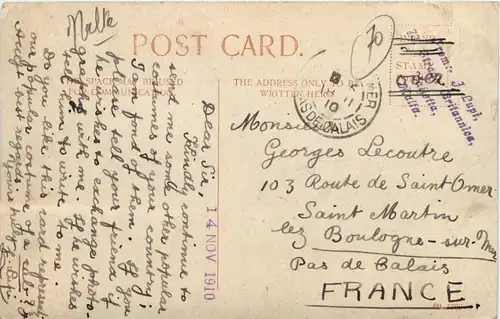 Malte
POST CARD.
SPACE MAY BE USED
COMMUNICATION
THE ADDRESS ONLY TO BE
WRITTEN HERE
70
MER
PAS DE CALAIS
11
10
From: J.
Strada
Britannica,
Valletta
Malta.
14 NOV 1910
Dear Sir,
Kindly continue to
send me some other popular
costumes of your country;
I am fond of them. If you
please tell your friend if
he wishes to exchange photo-
graphs with me. If he wishes
tell him to write to me.
Do you like this card represent.
our popular costume of a
Accept best regards.
Yours
Monsieur
Georges Lecoutre
103 Route de Saint Omer
Saint Martin
lez Boulogne-sur-Mer
Pas de Calais
FRANCE